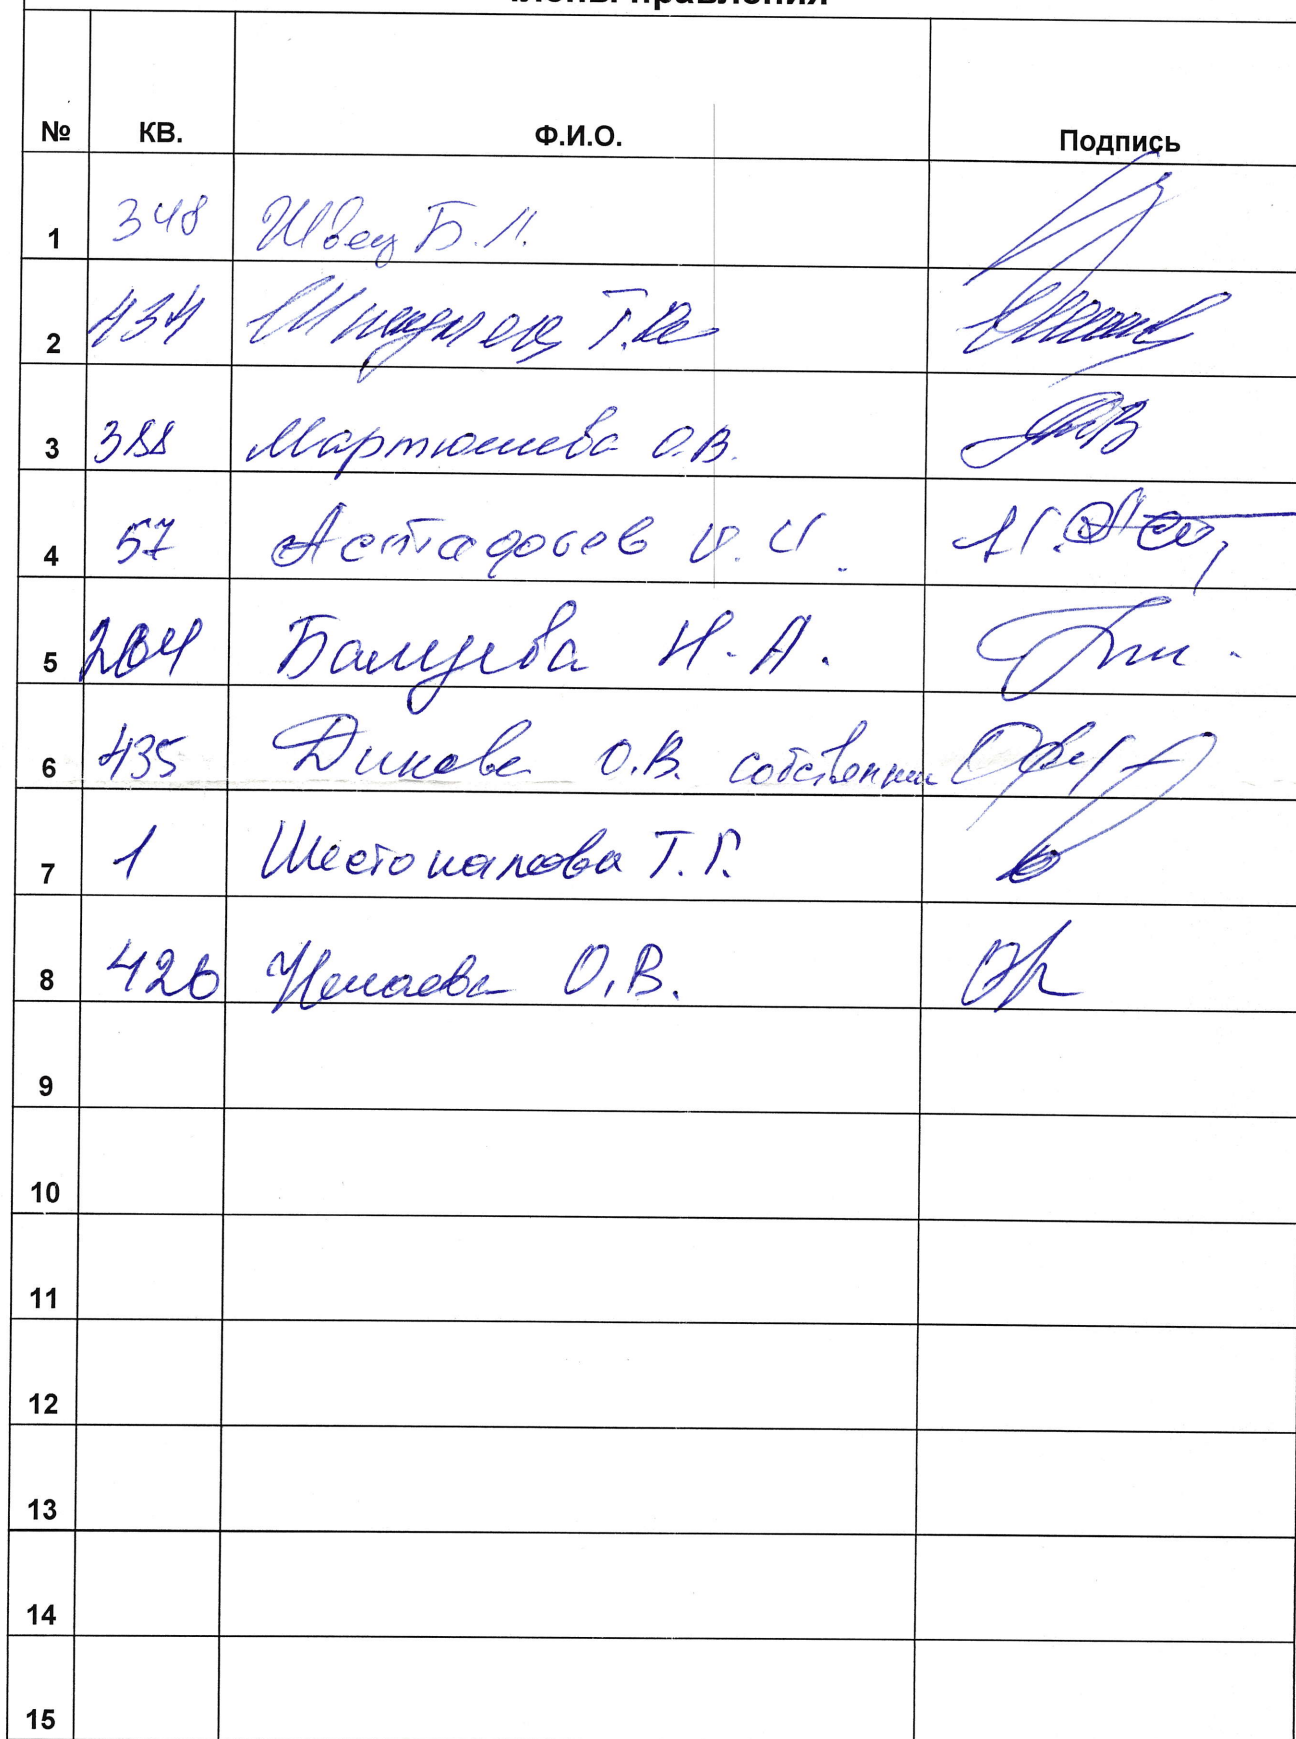 члены правления
№ КВ. Ф.И.О. Подпись
1 348 Швец Б.Л.
2 434 Т.
3 388 Мартюшева О.В.
4 57 Астафьев И.И.
5 204 Н.А.
6 435 Дикова О.В. собственник
7 1 Шестопалова Т.Г.
8 426 О.В.
9
10
11
12
13
14
15